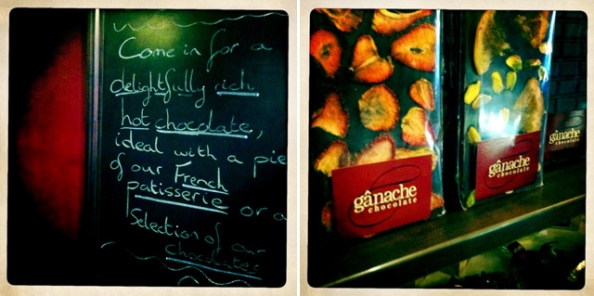 Come in for a
delightfully rich
hot chocolate,
ideal with a pie
of our French
patisserie or a
Selection of our
chocolates
gânache
chocolate
gânache
chocolate
gânache
chocolate